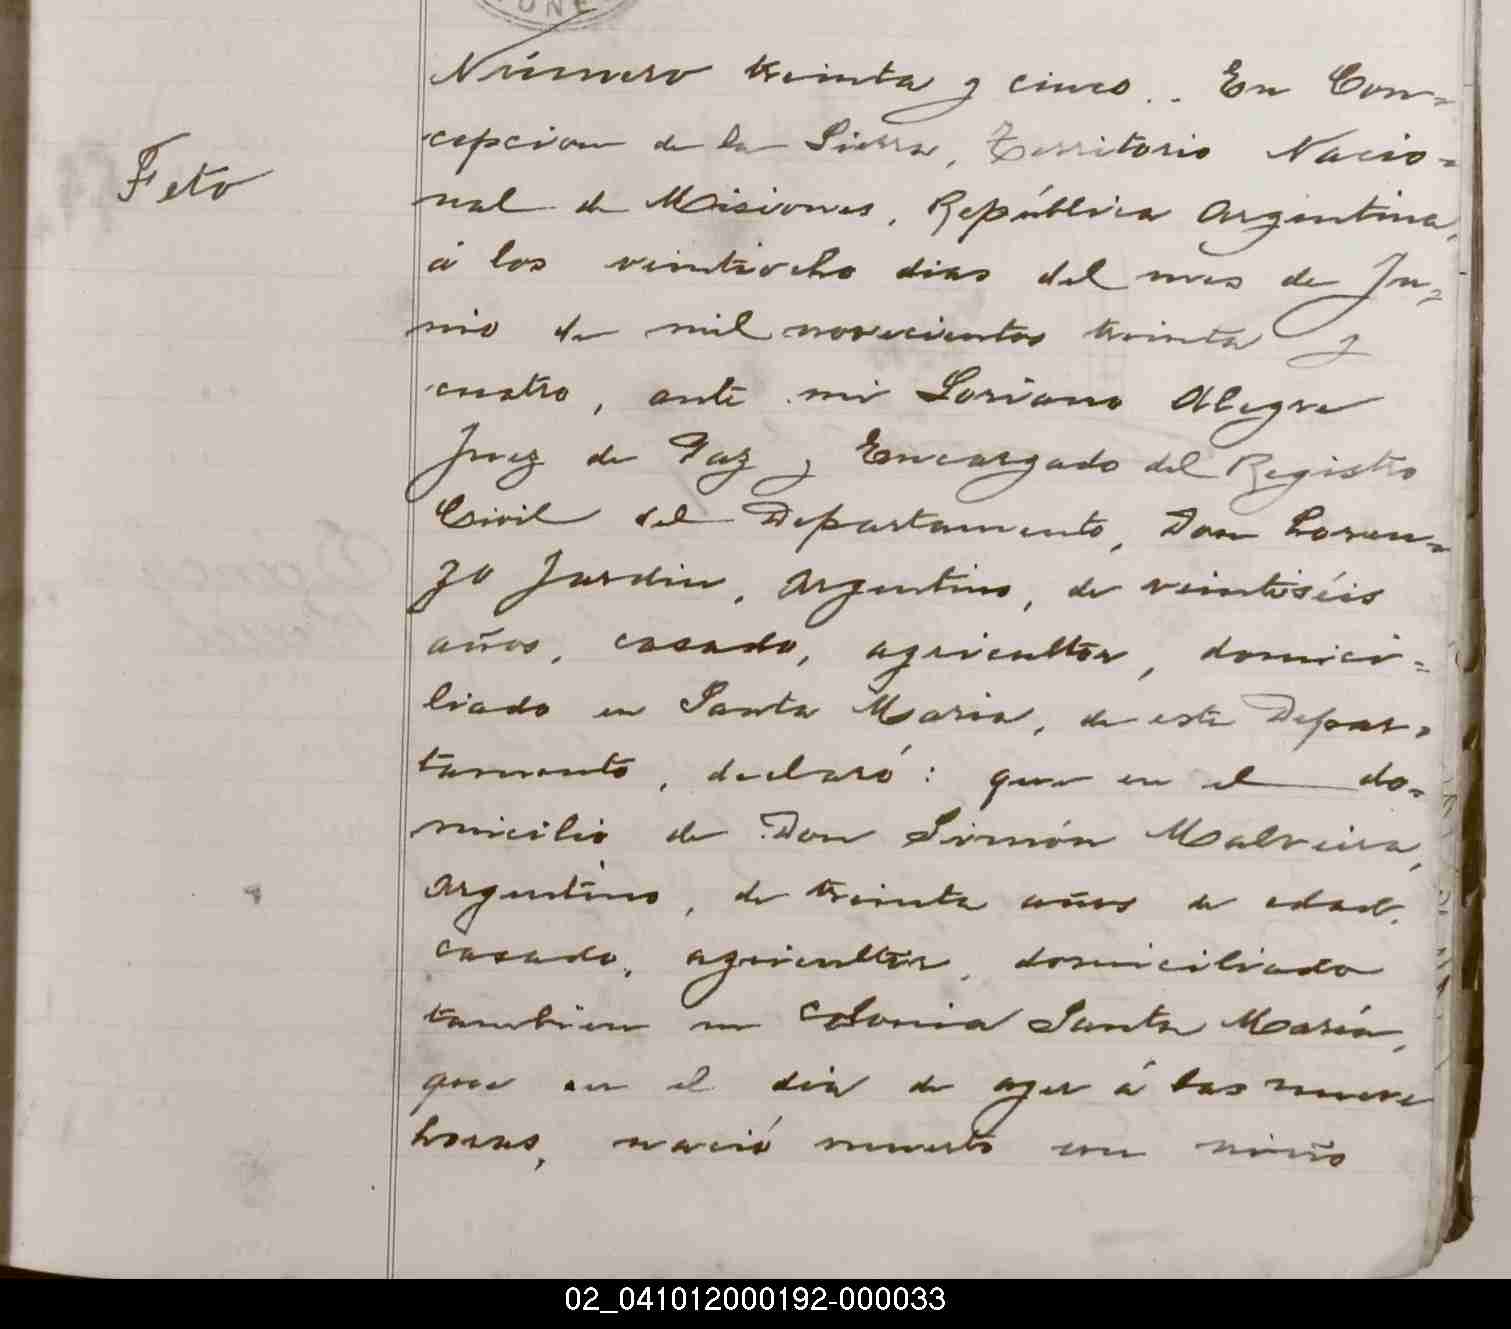 UNE
Número treinta y cinco.. En Con-
cepcion de la Sierra, Territorio Nacio-
Feto
nal de Misiones, República Argentina,
á los veintiocho dias del mes de Ju-
nio de mil novecientos treinta y
cuatro, ante mi Loriano Alegre
Juez de Paz y Encargado del Registro
Civil del Departamento, Don Loren-
zo Jardin, argentino, de veintiséis
años, casado, agricultor, domici-
liado en Santa Maria, de este Depar-
tamento, declaró: que en el do-
micilio de Don Simón Malveira,
argentino, de treinta años de edad,
casado, agricultor, domiciliado
tambien en Colonia Santa María,
que en el dia de ayer á las nueve
horas, nació muerto un niño
02_041012000192-000033